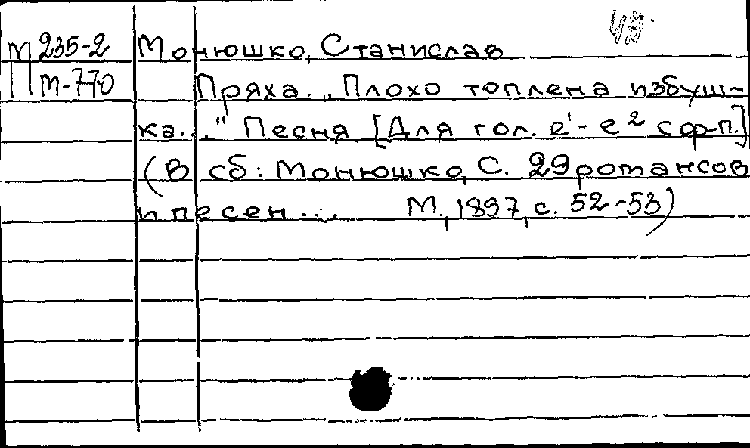 М 235-2 Монюшко, Станислав
М-770 Пряха. „Плохо топлена избуш-
ка..." Песня [Для гол. e¹-e² с ф-п.]
(В сб: Монюшко, С. 29 романсов
и песен... М, 1897, с. 52-53)